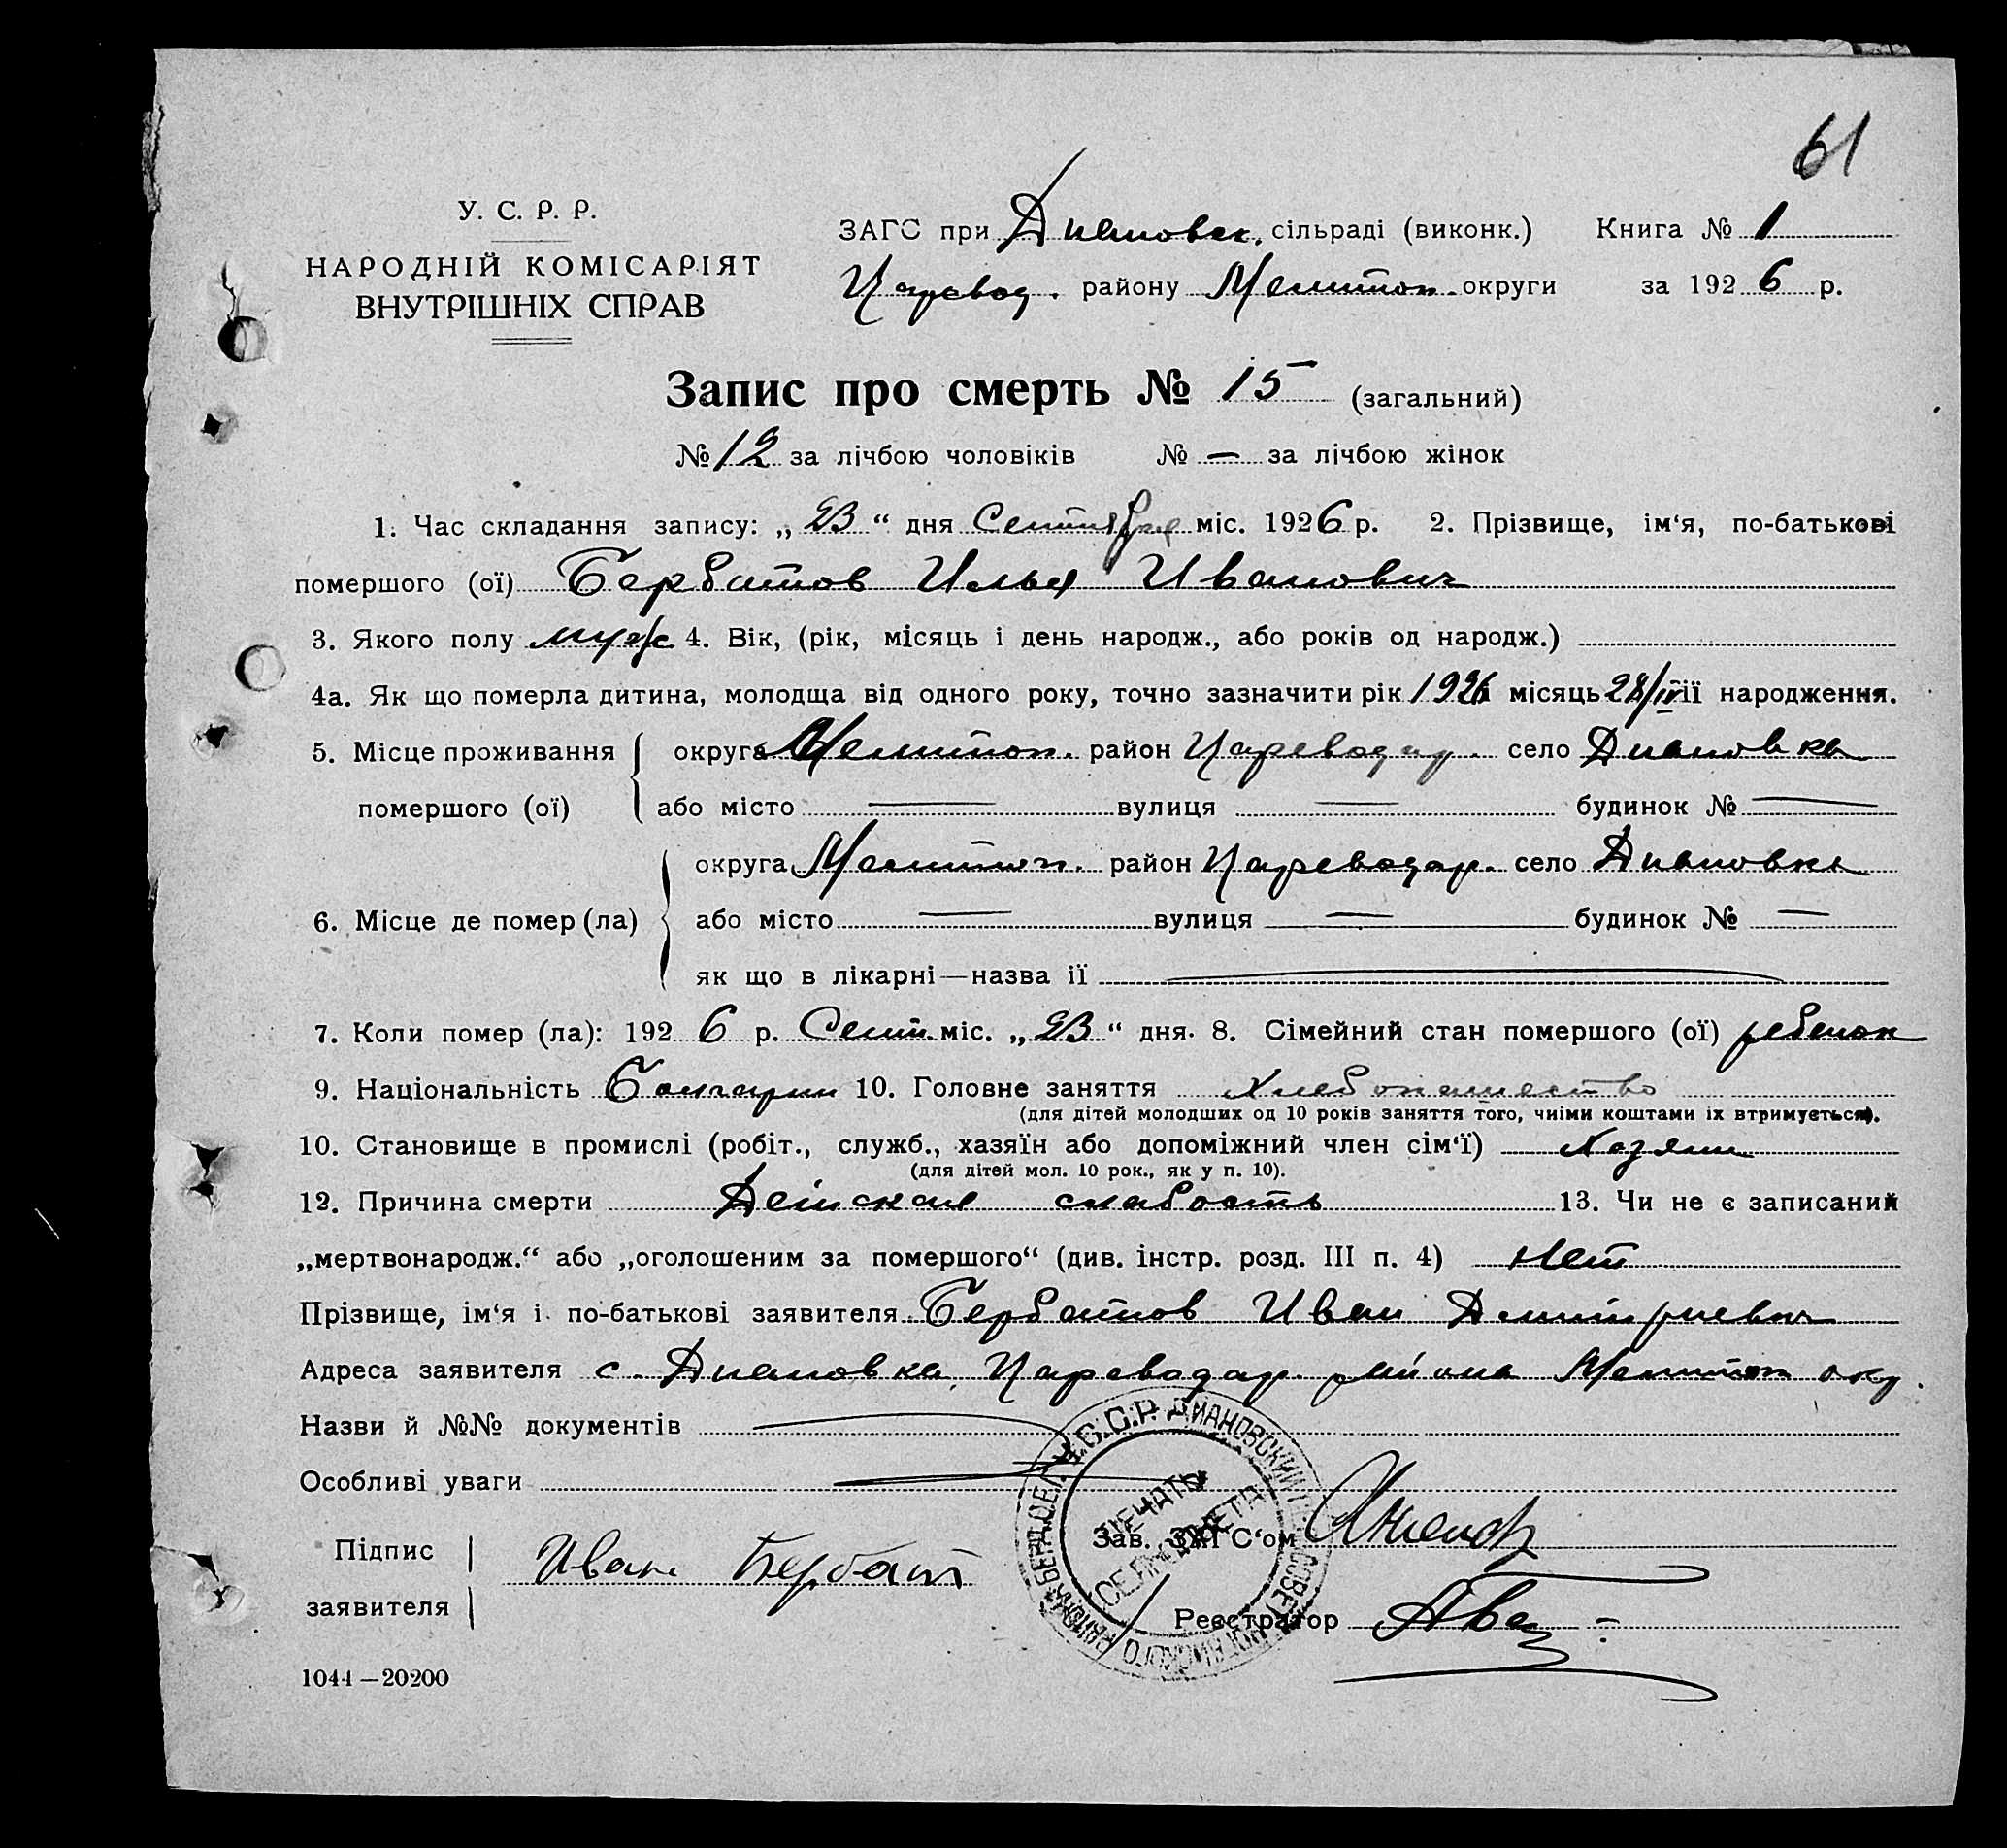 61
У. С. Р. Р.
НАРОДНІЙ КОМІСАРІЯТ
ВНУТРІШНІХ СПРАВ
ЗАГС при Диановск. сільраді (виконк.) Книга № 1
Царевод. району Мелитоп. округи за 1926 р.
Запис про смерть № 15 (загальний)
№ 12 за лічбою чоловіків № — за лічбою жінок
1. Час складання запису: „23“ дня Сентября міс. 1926 р. 2. Прізвище, ім‘я, по-батькові
помершого (ої) Бербатов Илья Иванович
3. Якого полу муж 4. Вік, (рік, місяць і день народж., або років од народж.)
4а. Як що померла дитина, молодща від одного року, точно зазначити рік 1926 місяць 28/IV її народження.
5. Місце проживання округа Мелитоп. район Цареводар. село Диановка
помершого (ої) або місто — вулиця — будинок № —
округа Мелитоп. район Цареводар. село Диановка
6. Місце де помер (ла) або місто — вулиця — будинок № —
як що в лікарні—назва її —
7. Коли помер (ла): 1926 р. Сент. міс. „23“ дня. 8. Сімейний стан помершого (ої) ребенок
9. Національність Болгарин 10. Головне заняття Хлебопашество
(для дітей молодших од 10 років заняття того, чиїми коштами їх втримується).
10. Становище в промислі (робіт., служб., хазяїн або допоміжний член сім‘ї) Хозяин
(для дітей мол. 10 рок., як у п. 10).
12. Причина смерти Детская слабость 13. Чи не є записаний
„мертвонародж.“ або „оголошеним за помершого“ (див. інстр. розд. III п. 4) Нет
Прізвище, ім‘я і по-батькові заявителя Бербатов Иван Дмитриевич
Адреса заявителя с. Диановка, Цареводар. района Мелитоп окр.
Назви й №№ документів —
Особливі уваги —
У.С.С.Р. ДИАНОВСКИЙ
ПЕЧАТЬ
СЕЛЬСОВЕТА
Підпис
заявителя Иван Бербат
Зав. ЗАГС‘ом
Реєстратор
1044—20200